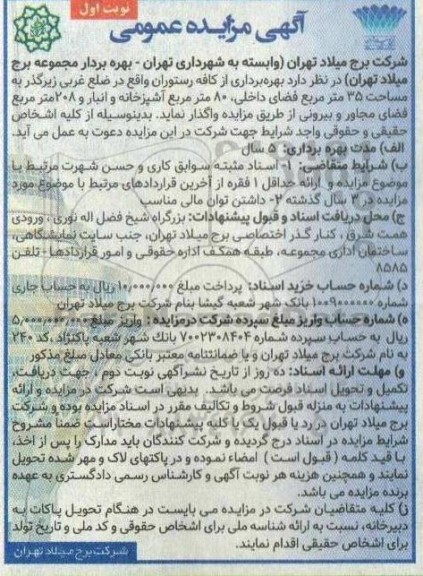 نوبت اول
آگهی مزایده عمومی
شرکت برج میلاد تهران (وابسته به شهرداری تهران - بهره بردار مجموعه برج
میلاد تهران) در نظر دارد بهره‌برداری از کافه رستوران واقع در ضلع غربی زیرگذر به
مساحت ۳۵ متر مربع فضای داخلی، ۸۰ متر مربع آشپزخانه و انبار و ۲۰۸متر مربع
فضای مجاور و بیرونی از طریق مزایده واگذار نماید. بدینوسیله از کلیه اشخاص
حقیقی و حقوقی واجد شرایط جهت شرکت در این مزایده دعوت به عمل می آید.
الف) مدت بهره برداری: ۵ سال
ب) شرایط متقاضی: ۱- اسناد مثبته سوابق کاری و حسن شهرت مرتبط با
موضوع مزایده و ارائه حداقل ۱ فقره از آخرین قراردادهای مرتبط با موضوع مورد
مزایده در ۲ سال گذشته ۲- داشتن توان مالی مناسب
ج) محل دریافت اسناد و قبول پیشنهادات: بزرگراه شیخ فضل اله نوری ، ورودی
همت شرق ، کنار گذر اختصاصی برج میلاد تهران، جنب سایت نمایشگاهی،
ساختمان اداری مجموعه، طبقه همکف اداره حقوقی و امور قراردادها - تلفن
۸۵۸۵
د) شماره حساب خرید اسناد: پرداخت مبلغ ۱۰,۰۰۰,۰۰۰ ریال به حساب جاری
شماره ۱۰۰۹۰۰۰۰۰۰ بانک شهر شعبه گیشا بنام شرکت برج میلاد تهران
ه) شماره حساب واریز مبلغ سپرده شرکت در مزایده : واریز مبلغ ۵,۰۰۰,۰۰۰,۰۰۰
ریال به حساب سپرده شماره ۷۰۰۲۳۰۸۴۰۴ بانک شهر شعبه پاکنژاد ،کد ۲۴۰
به نام شرکت برج میلاد تهران و یا ضمانتنامه معتبر بانکی معادل مبلغ مذکور
و) مهلت ارائه اسناد: ده روز از تاریخ نشر آگهی نوبت دوم ، جهت دریافت،
تکمیل و تحویل اسناد فرصت می باشد. بدیهی است شرکت در مزایده و ارائه
پیشنهادات به منزله قبول شروط و تکالیف مقرر در اسناد مزایده بوده و شرکت
برج میلاد تهران در رد یا قبول یک یا کلیه پیشنهادات مختار است ضمنا مشروح
شرایط مزایده در اسناد درج گردیده و شرکت کنندگان باید مدارک را پس از اخذ،
با قید کلمه ( قبول است ) امضاء نموده و در پاکتهای لاک و مهر شده تحویل
نمایند و همچنین هزینه هر نوبت آگهی و کارشناس رسمی دادگستری به عهده
برنده مزایده می باشد.
ز) کلیه متقاضیان شرکت در مزایده می بایست در هنگام تحویل پاکات به
دبیرخانه، نسبت به ارائه شناسه ملی برای اشخاص حقوقی و کد ملی و تاریخ تولد
برای اشخاص حقیقی اقدام نمایند.
شرکت برج میلاد تهران